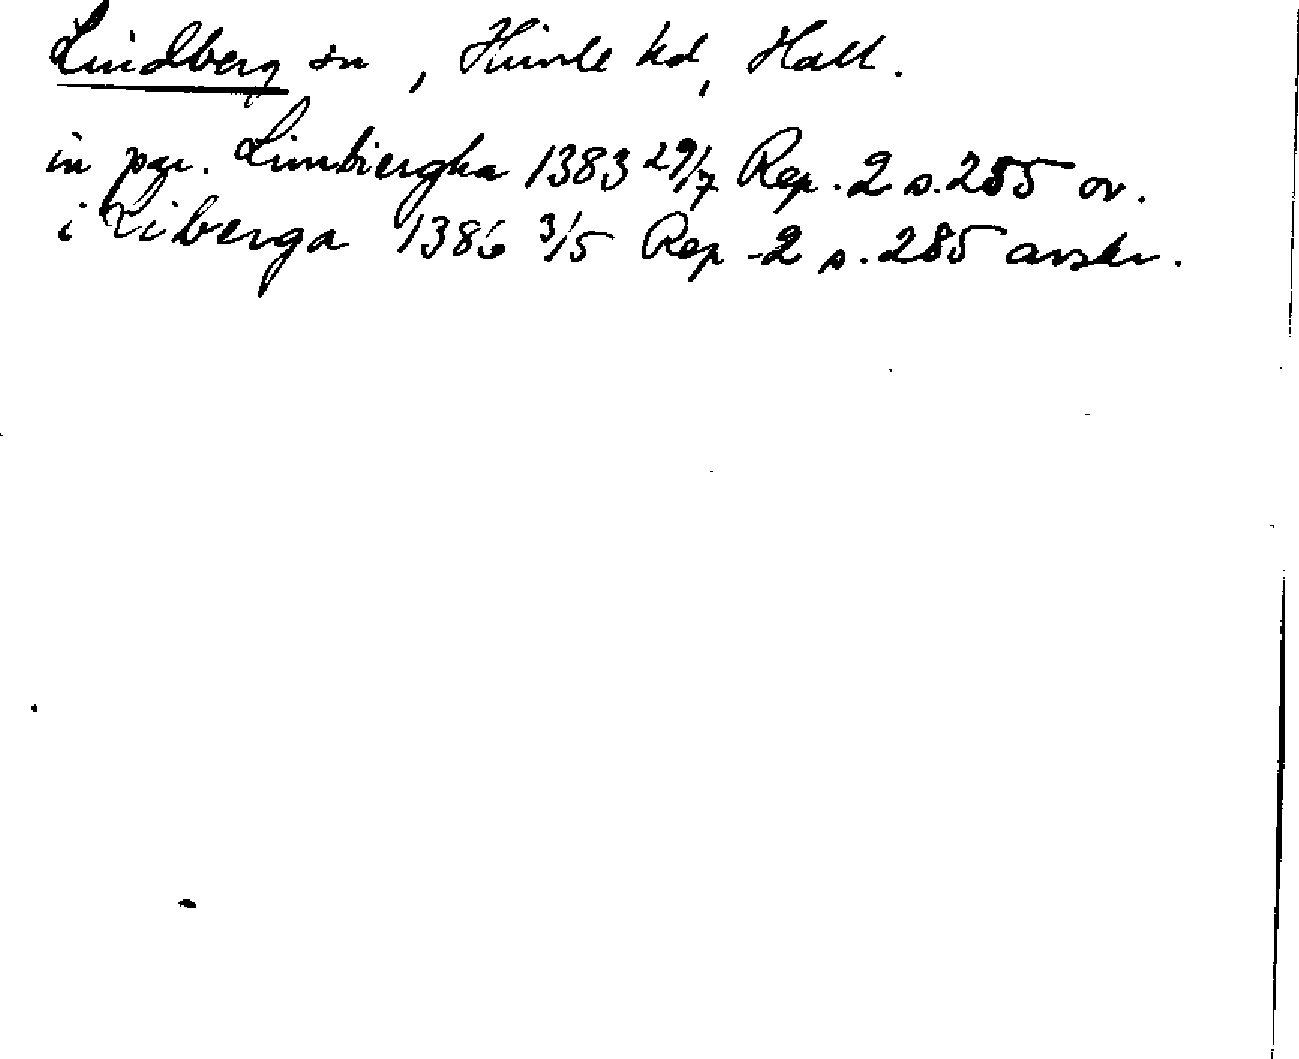 Lindberg sn, Himle hd, Hall.
in par. Limbiergha 1383 29/7 Rep. 2 s. 255 or.
i Liberga 1386 3/5 Rep 2 s. 285 avskr.